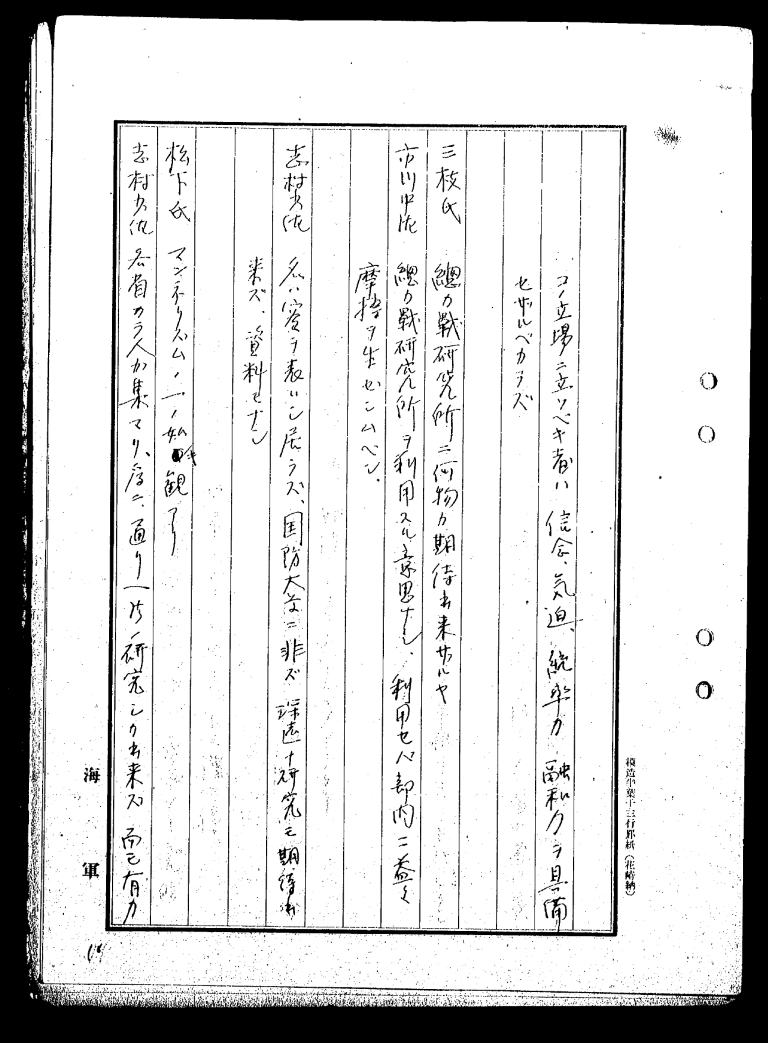 コノ立場ニ立ツベキ者ハ信念、気迫、統率力融和力ヲ具備
セザルベカラズ
三枝氏 總力戰研究所ニ何物カ期待出来サルヤ
市川中佐 總力戰研究所ヲ利用スル意思ナシ、利用セバ部内ニ益々
摩擦ヲ生センムベシ.
志村少佐 名ハ実ヲ表ハシ居ラズ、国防大学ニ非ズ 深遠ナ研究モ期待出
来ズ、資料モナシ
松下氏 マンネリズムノ一ノ如 観アリ
志村少佐 各省カラ人カ集マリ、 通リ一片ノ研究シカ出来ズ 而モ有力
海軍
模造半葉十三行罫紙